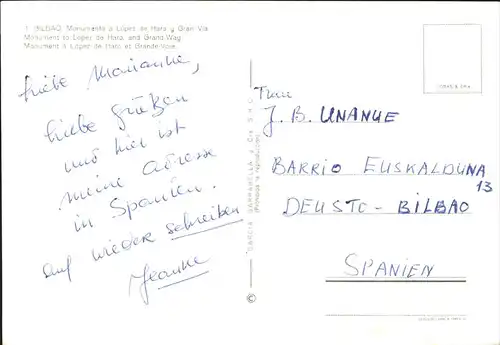 1. BILBAO. Monumento a López de Hara y Gran Vía
Monument to López de Hara, and Grand-Way
Monument à López de Haro et Grande-Voie.
Liebe Marianne,
liebe Grüßen
und hier ist
meine adresse
in Spanien.
auf wieder schreiben
Jeanne
GARCIA GARRABELLA Y Cía
(Prohibida la reproducción)
©
J. B. UNANUE
BARRIO EUSKALDUNA
13
DEUSTO - BILBAO
SPANIEN